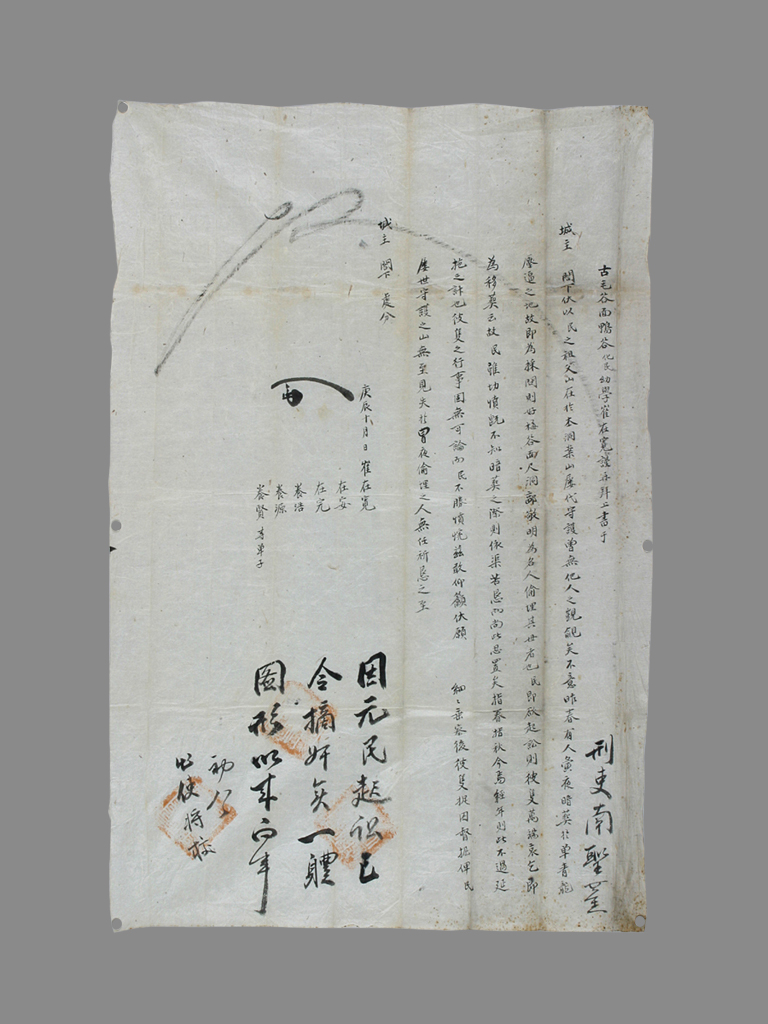 古毛谷面鴨谷化民幼學崔在寬謹再拜上書于
城主 閤下伏以民之祖父山在於本洞案山屢代守護曾無他人之覬覦矣不意昨春有人黃夜暗葬於單青龍
壓逼之地故即為採聞則好梅谷面人洞敬明為名人偷埋是世者也民即欲起訟則彼隻萬端哀乞即
為移葬云故民雖切憤既不知暗葬之際則依渠苦懇而尚此忍置矣指春指秋今焉經年則此不過延
拖之計也彼隻之行事固無可論而民不勝憤惋玆敢仰籲伏願 細細垂察後彼隻捉囚督掘俾民
屢世守護之山無至見失於冒夜偷埋之人無任祈懇之至
城主 閤下 處分
庚辰十月日 崔在寬
在安
在完
養浩
養源
養賢 等單子
刑吏南聖
因元民起訟已
令摘奸矣一軆
圖形以來向事
初八
狀使將校